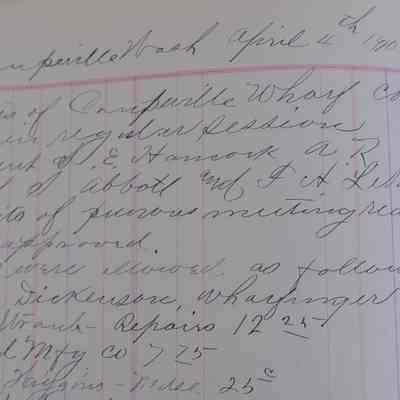 upeville Wash April 4th 190
of Coupeville Wharf Co
in regular session
S. E. Hancock A. R
S Abbott and F A Le
of previous meeting rea
approved.
were allowed as follow
Dickenson, Wharfinger
Straub - Repairs 12 25
Mfg Co 7 75
Higgins - Mdse 25c